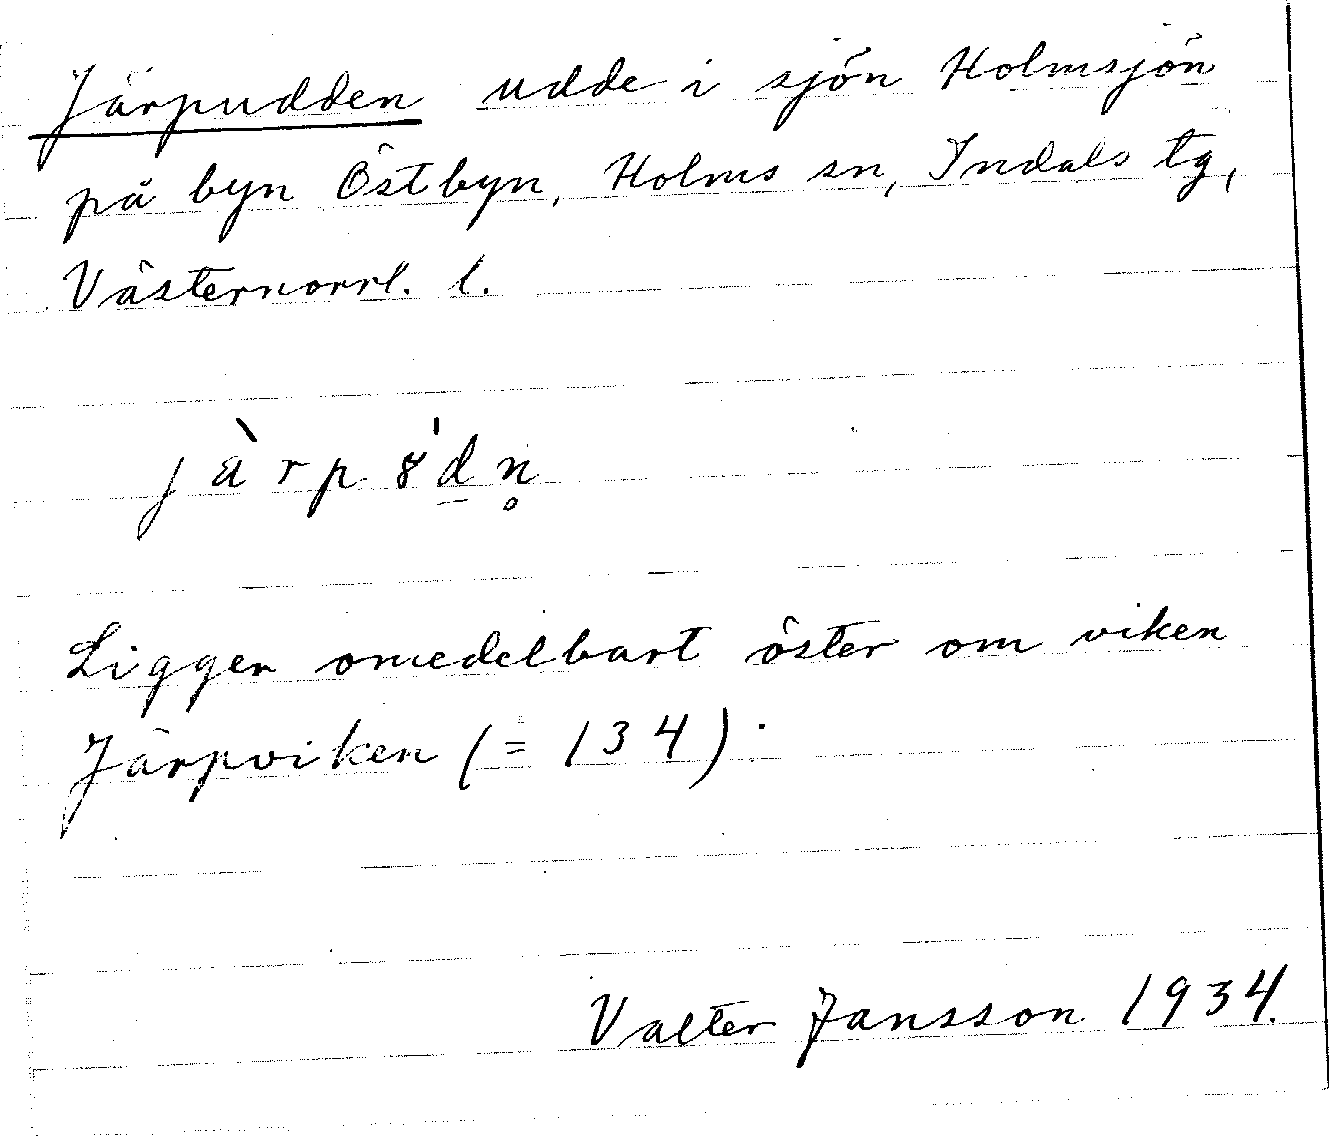 Järpudden udde i sjön Holmsjön
på byn Östbyn, Holms sn, Indals tg,
Västernorrl. l.
jàrp8́d̲n̥
Ligger omedelbart öster om viken
Järpviken (= 134).
Valter Jansson 1934.